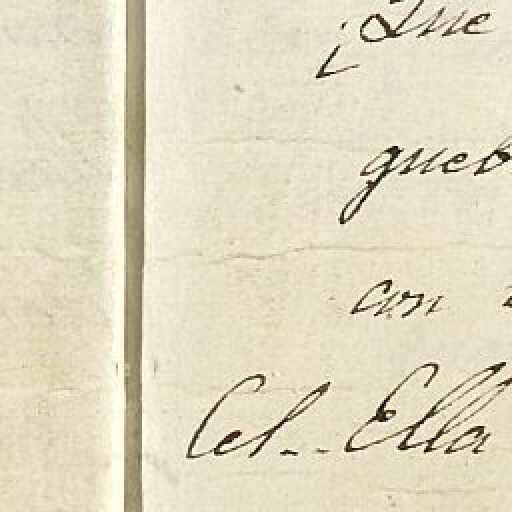 ¿Que
queb
con
Cel.. Ella